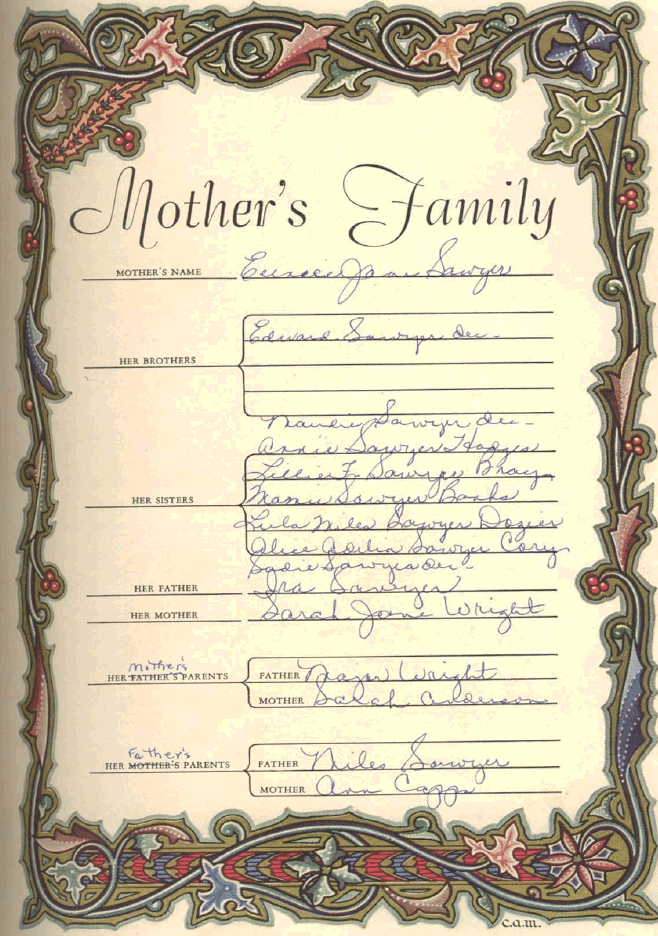 Mother's Family
MOTHER'S NAME Eunice Jane Sawyer
HER BROTHERS Edward Sawyer dec-
Sawyer dec-
Annie Sawyer Hodges
Lillie F. Sawyer Bray
HER SISTERS Mamie Sawyer Banks
Lula Miles Sawyer Dozier
Alice Adilia Sawyer Cory
Sadie Sawyer dec-
HER FATHER Ira Sawyer
HER MOTHER Sarah Jane Wright
Mother's
HER FATHER'S PARENTS FATHER Major Wright
MOTHER Sarah Anderson
Father's
HER MOTHER'S PARENTS FATHER Miles Sawyer
MOTHER Ann Capps
c.a.m.